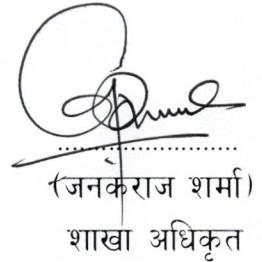 ....................................
(जनकराज शर्मा)
शाखा अधिकृत